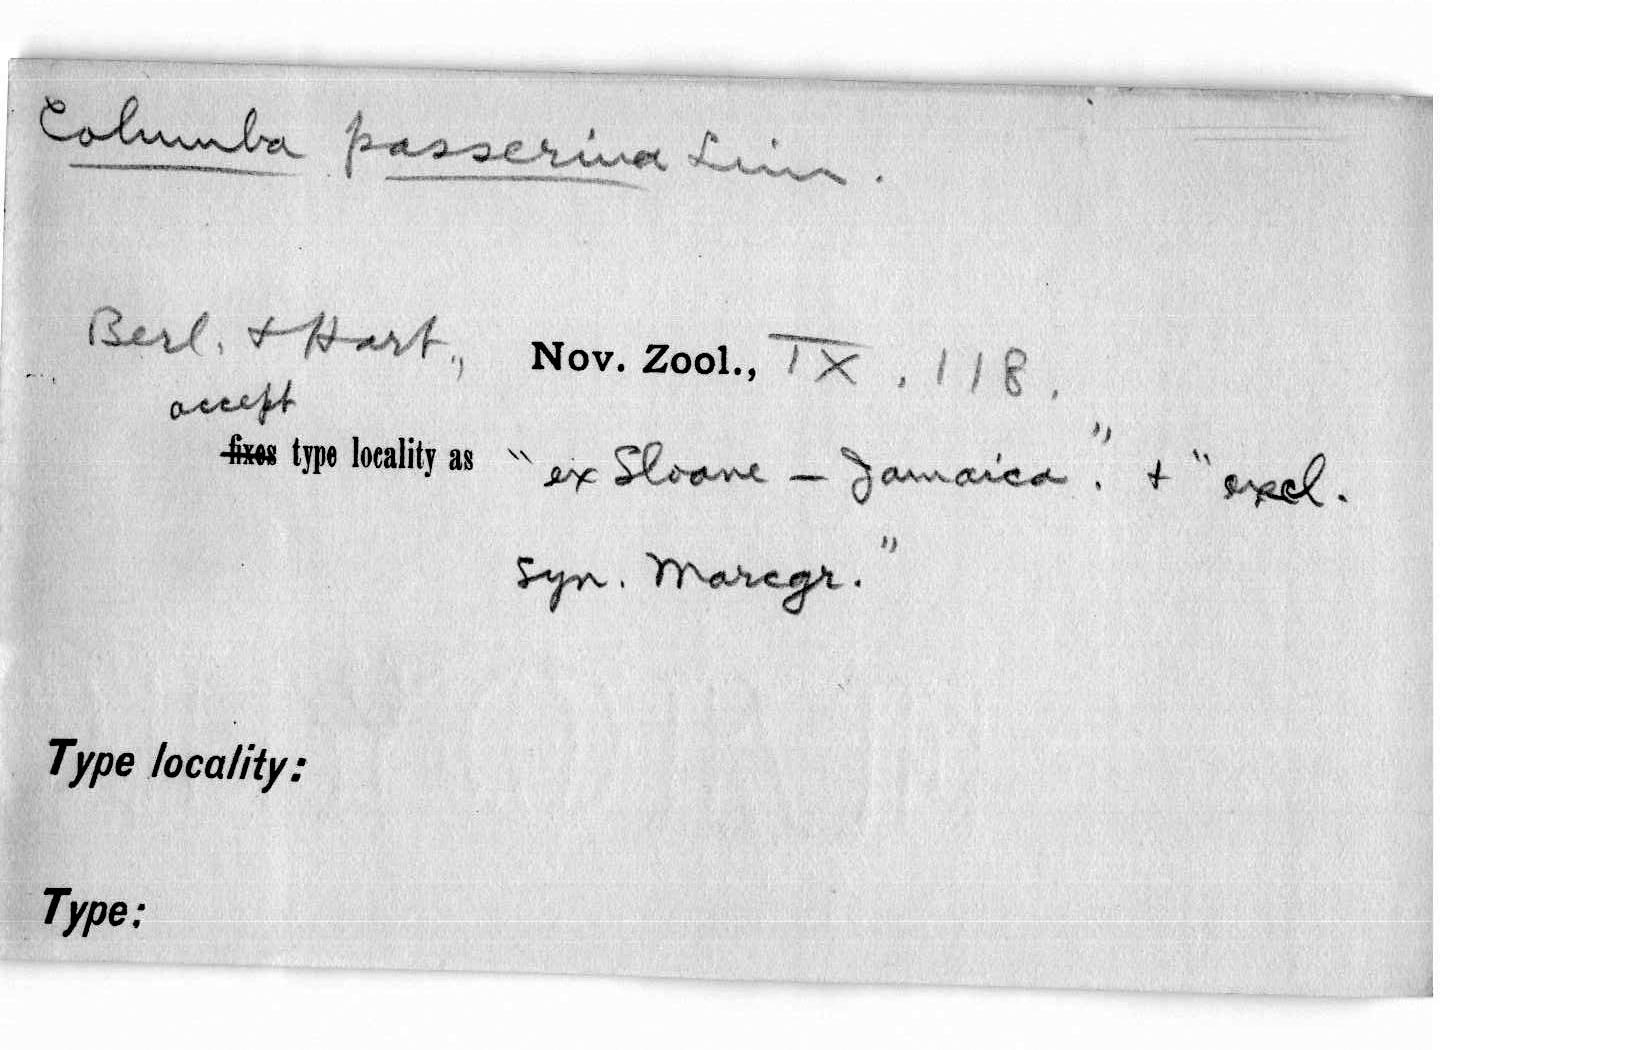 Columba passerina Linn.
Berl. + Hart., Nov. Zool., IX, 118.
accept
fixes type locality as "ex Sloane – Jamaica". + "excl.
syn. Marcgr."
Type locality:
Type: